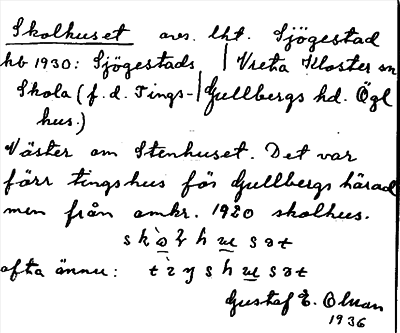 Skolhuset avs. lht. Sjögestad
hb 1930: Sjögestads | Vreta Kloster sn
Skola (f. d. Tings- | Gullbergs hd. Ögl
hus.)
Väster om Stenhuset. Det var
förr tingshus för Gullbergs härad
men från omkr. 1920 skolhus.
ofta ännu:
Gustaf E. Olsson
1936